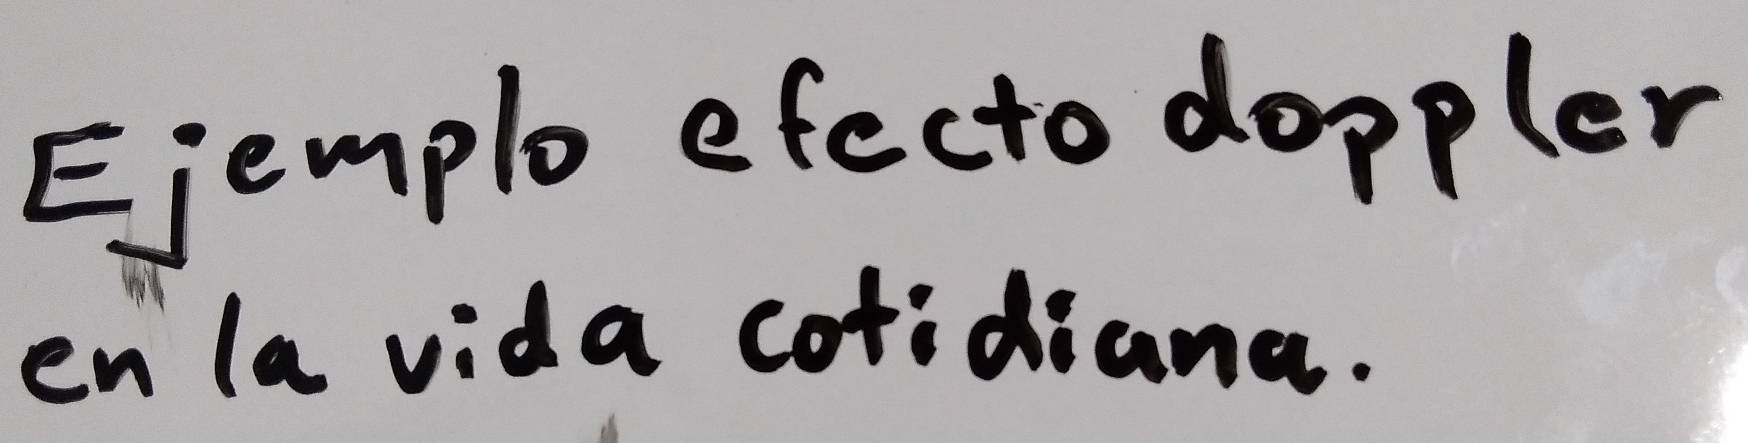 Ejemplo efecto doppler
en la vida cotidiana.